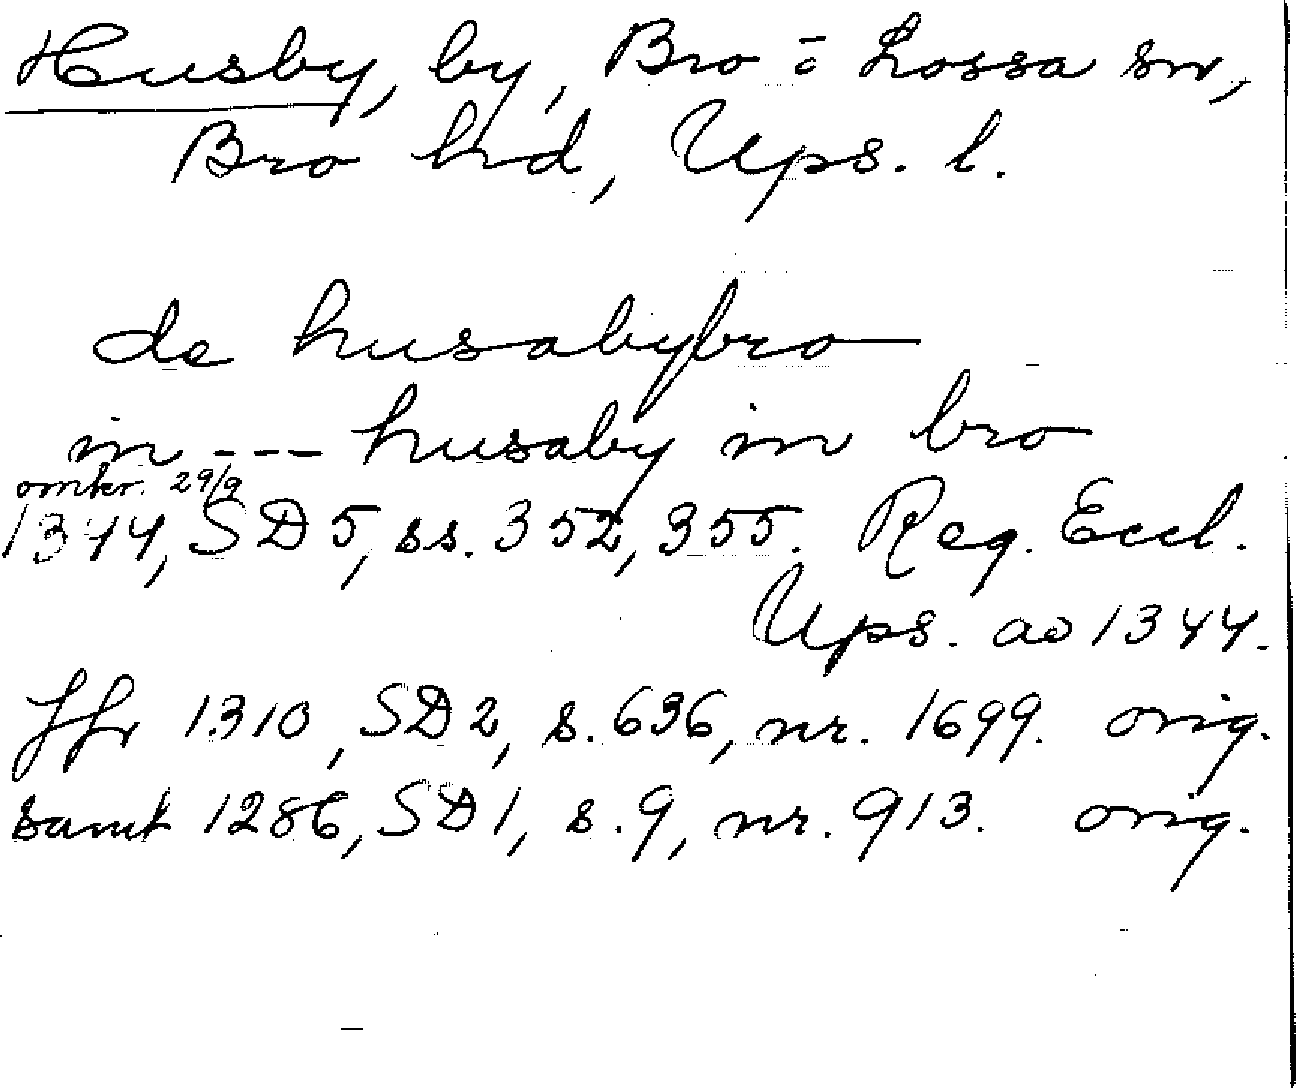 Husby, by, Bro = Lossa sn,
Bro hd, Ups. l.
de husabybro
in --- husaby in bro
omkr. 29/9
1344, SD 5, ss. 352, 355. Reg. Eccl.
Ups. ao 1344.
Jfr 1310, SD 2, s. 636, nr. 1699. orig.
samt 1286, SD 1, s. 9, nr. 913. orig.